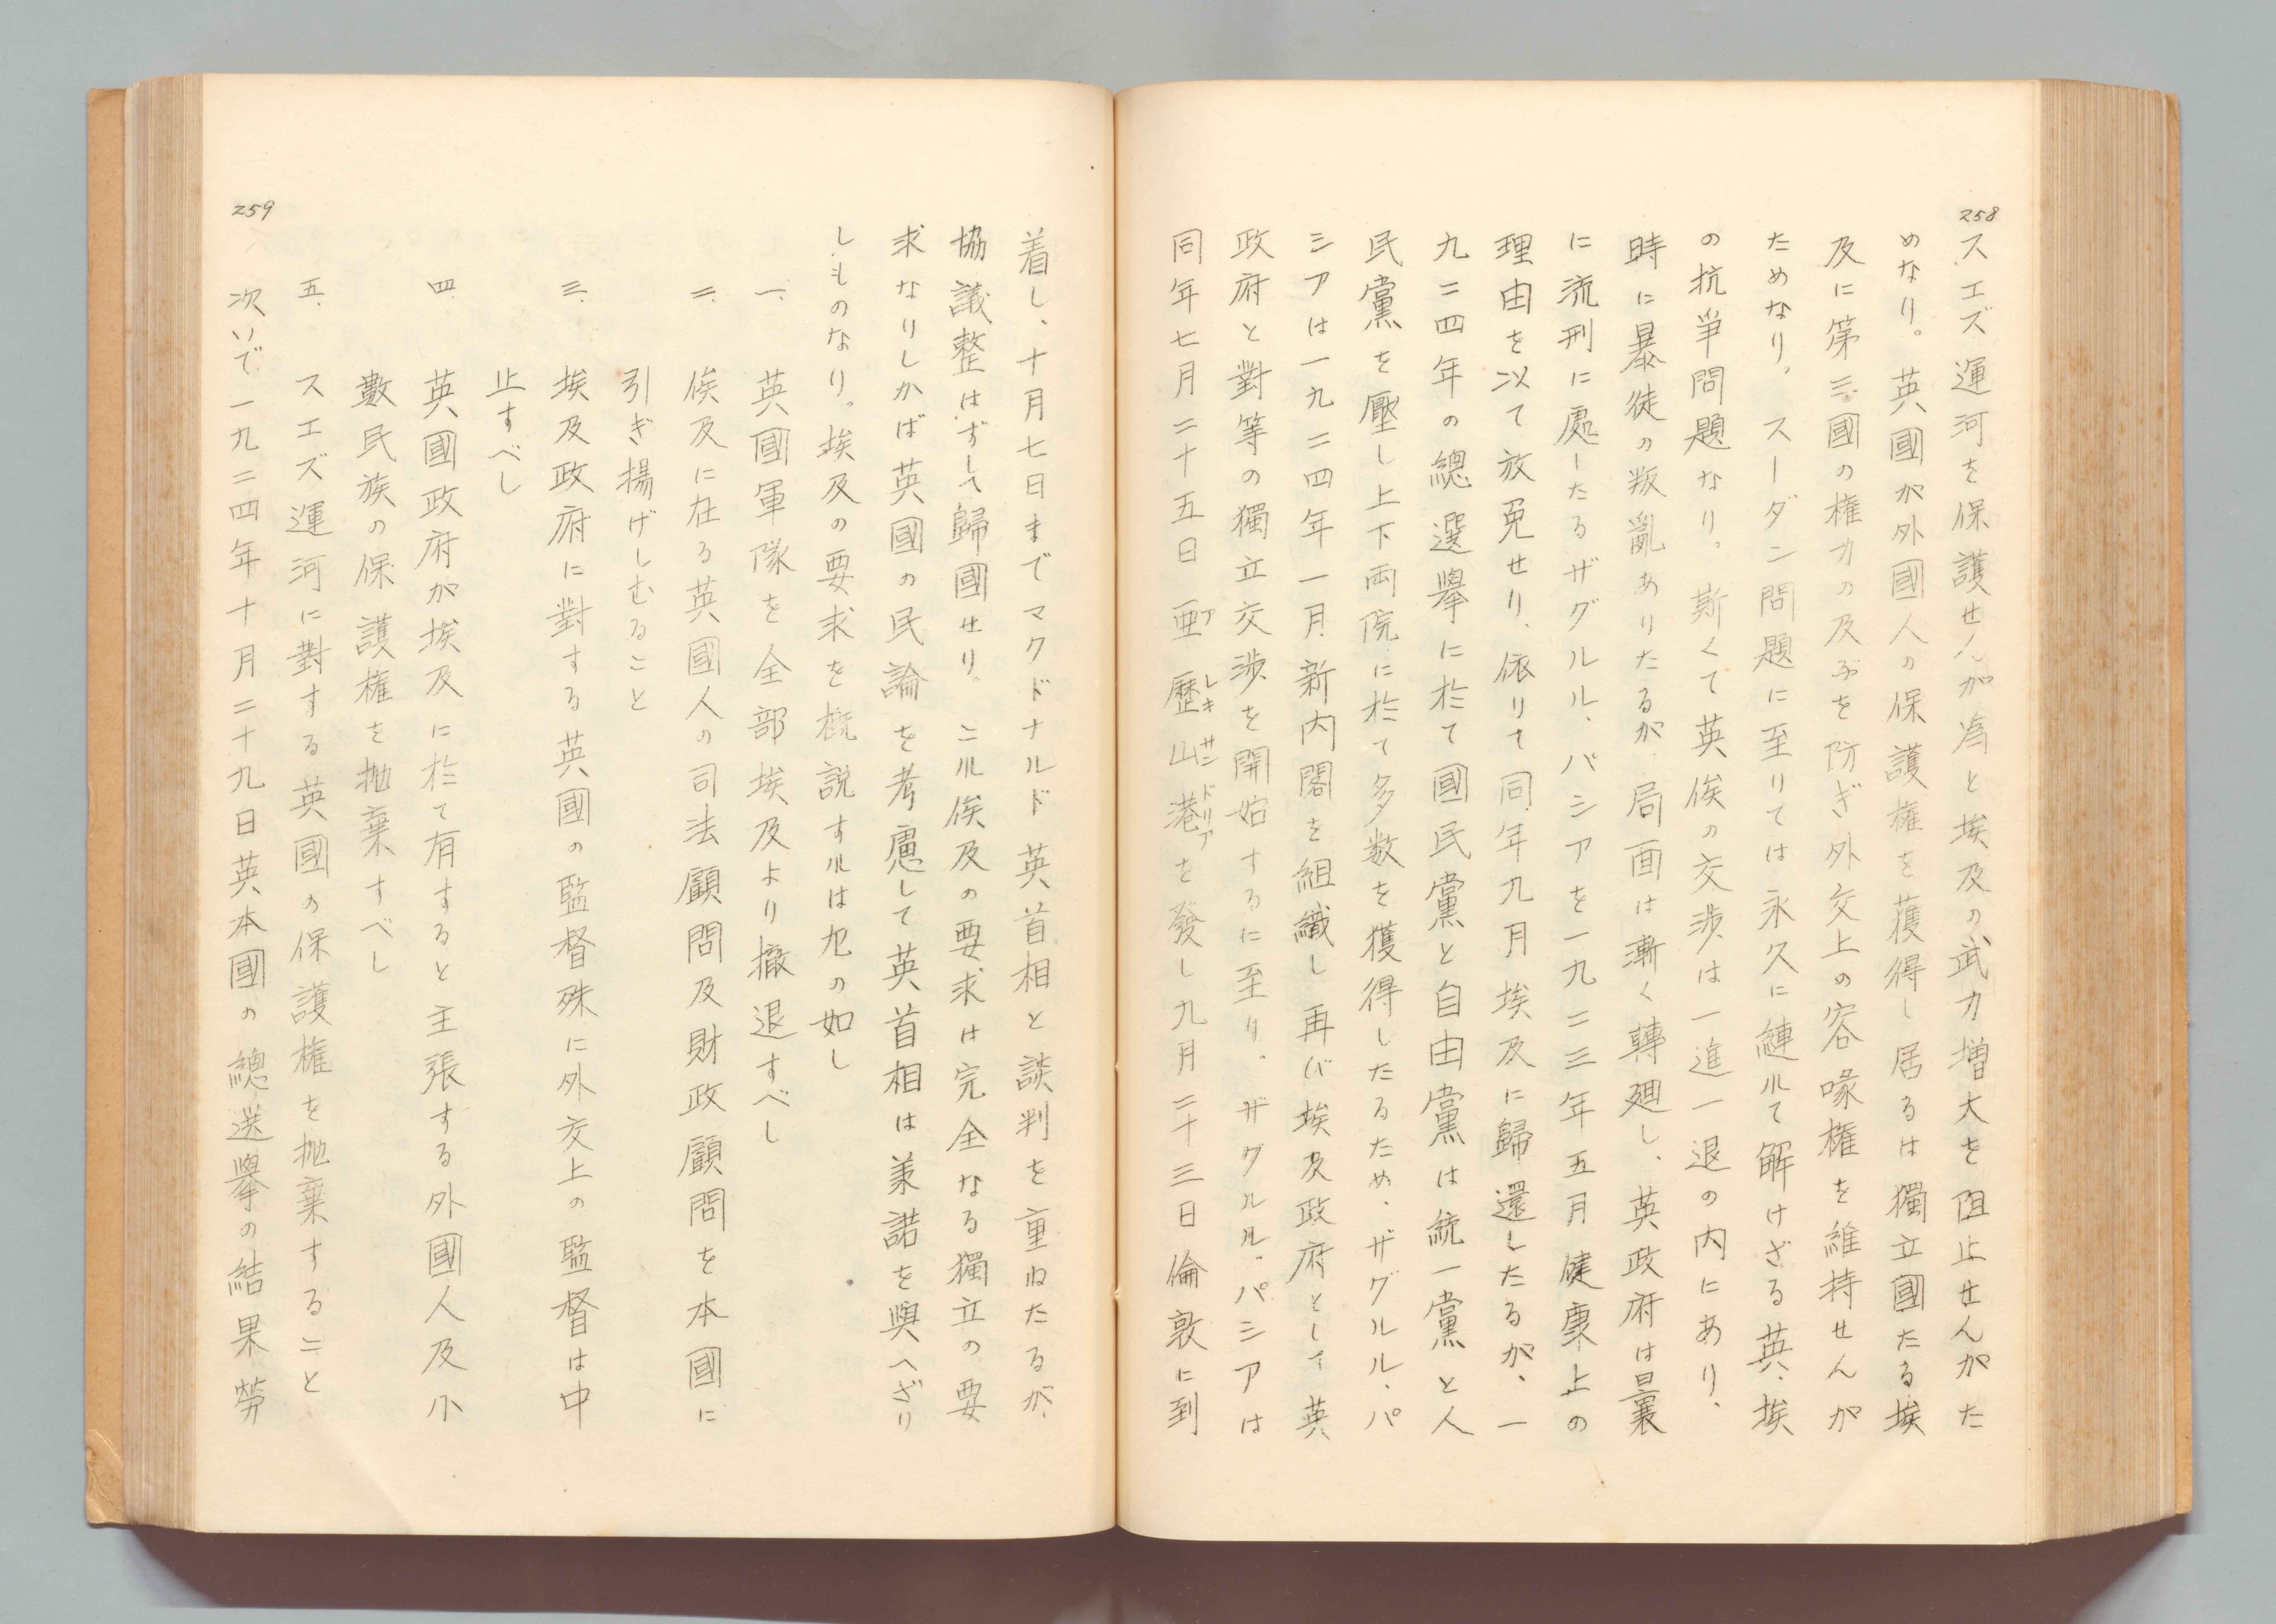 258
スエズ運河を保護せんが為と埃及の武力増大を阻止せんがた
めなり。英國が外國人の保護権を獲得し居るは獨立國たる埃
及に第三國の権力の及ぶを防ぎ外交上の容喙権を維持せんが
ためなり。スーダン問題に至りては永久に縺れて解けざる英、埃
の抗爭問題なり。斯くて英埃の交渉は一進一退の内にあり、
時に暴徒の叛亂ありたるが、局面は漸く轉廻し、英政府は曩
に流刑に處したるザグルル、パシアを一九二三年五月健康上の
理由を以て放免せり、依りて同年九月埃及に歸還したるが、一
九二四年の總選擧に於て國民黨と自由黨は統一黨と人
民黨を壓し上下両院に於て多数を獲得したるため、ザグルル、パ
シアは一九二四年一月、新内閣を組織し再び埃及政府として英
政府と對等の獨立交渉を開始するに至り。ザグルル、パシアは
同年七月二十五日亜歴山港を發し九月二十三日倫敦に到
アレキサンドリア
259
着し、十月七日までマクドナルド英首相と談判を重ねたるが、
協議整はずして歸國せり。これ埃及の要求は完全なる獨立の要
求なりしかば英國の民論を考慮して英首相は兼諾を與へざり
しものなり。埃及の要求を概説すれば左の如し
一、英國軍隊を全部埃及より撤退すべし
二、埃及に在る英國人の司法顧問及財政顧問を本國に
引ぎ揚げしむること
三、埃及政府に對する英國の監督殊に外交上の監督は中
止すべし
四、英國政府が埃及に於て有すると主張する外國人及小
數民族の保護権を抛棄すべし
五、スエズ運河に對する英國の保護権を抛棄すること
次いで一九二四年十月二十九日英本國の總選擧の結果勞